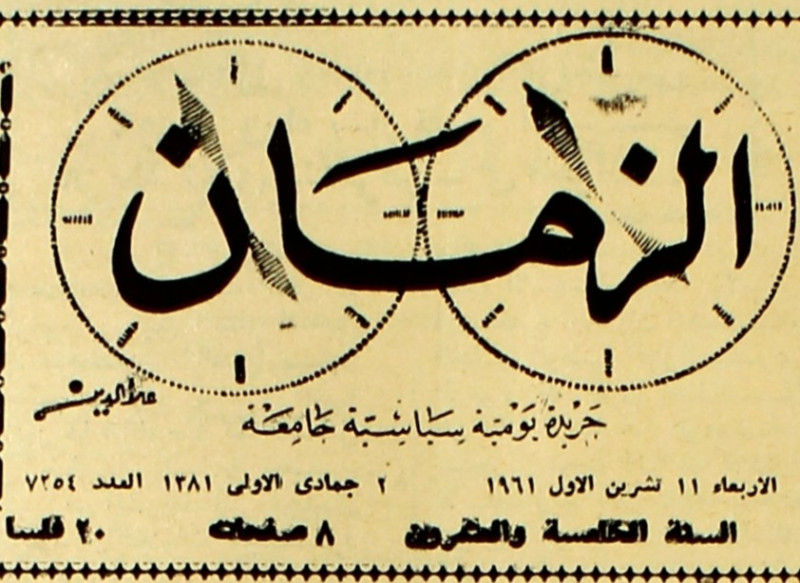 الزمان
علاء الدين
جريدة يومية سياسية جامعة
الاربعاء ١١ تشرين الاول ١٩٦١ ٢ جمادى الاولى ١٣٨١ العدد ٧٢٥٤
السنة الخامسة والعشرون ٨ صفحات ٢٠ فلسا